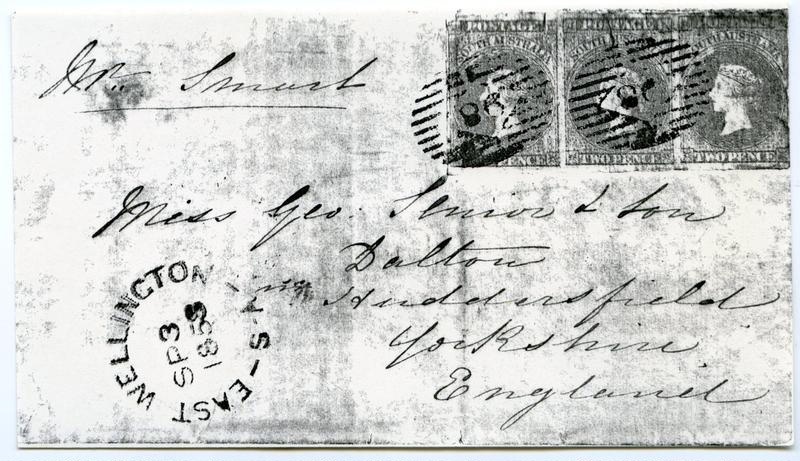 POSTAGE POSTAGE
SOUTH AUSTRALIA SOUTH AUSTRALIA SOUTH AUSTRALIA
TWO PENCE TWO PENCE TWO PENCE
Mr. Smart
Miss Geo. Senior & Son
Dalton
Huddersfield
Yorkshire
England
EAST WELLINGTON S-A
SP 3
1853